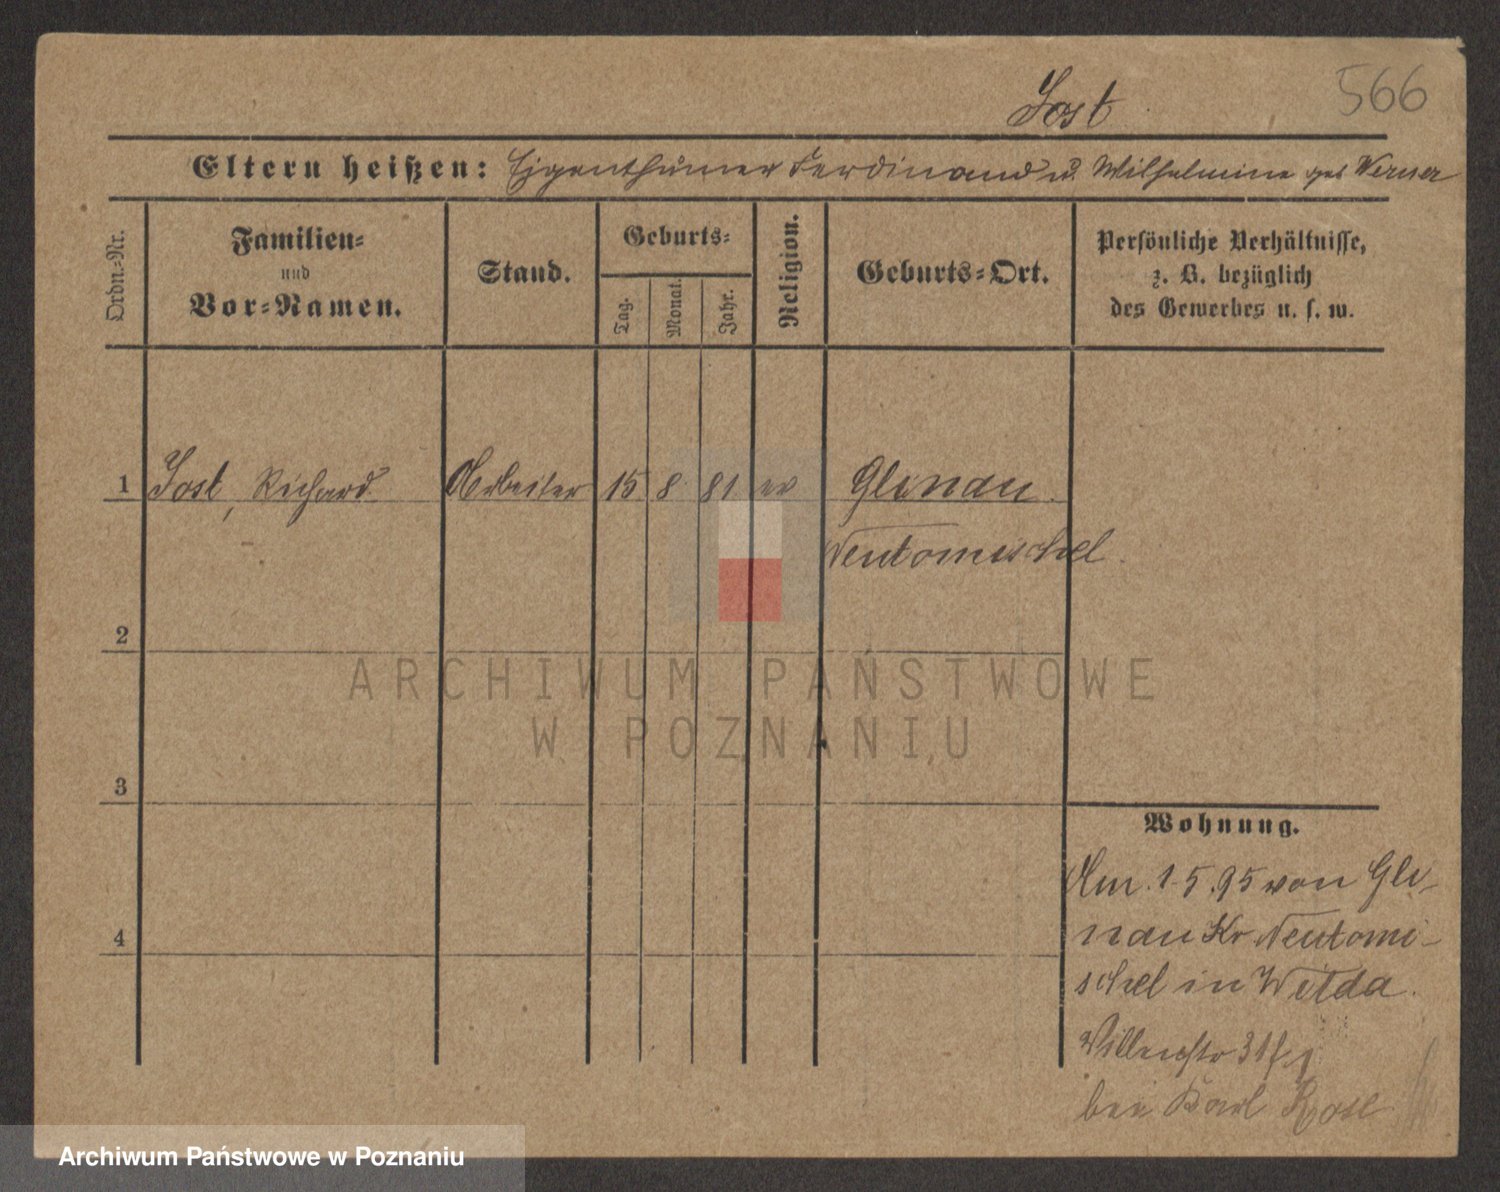 Jost
566
Eltern heißen: Eigenthümer Ferdinand u. Wilhelmine geb Werner
Ordn.-Nr.
Familien-
und
Vor-Namen.
Stand.
Geburts-
Tag.
Monat.
Jahr.
Religion.
Geburts-Ort.
Persönliche Verhältnisse,
z. B. bezüglich
des Gewerbes u. s. w.
1 Jost, Richard Arbeiter 15 8 81 ev Glinau.
Neutomischel.
2
ARCHIWUM PAŃSTWOWE
W POZNANIU
3
Wohnung.
Am. 1.5.95 von Gli-
nau Kr Neutomi-
schel in Wilda.
4
31
bei Karl
Archiwum Państwowe w Poznaniu